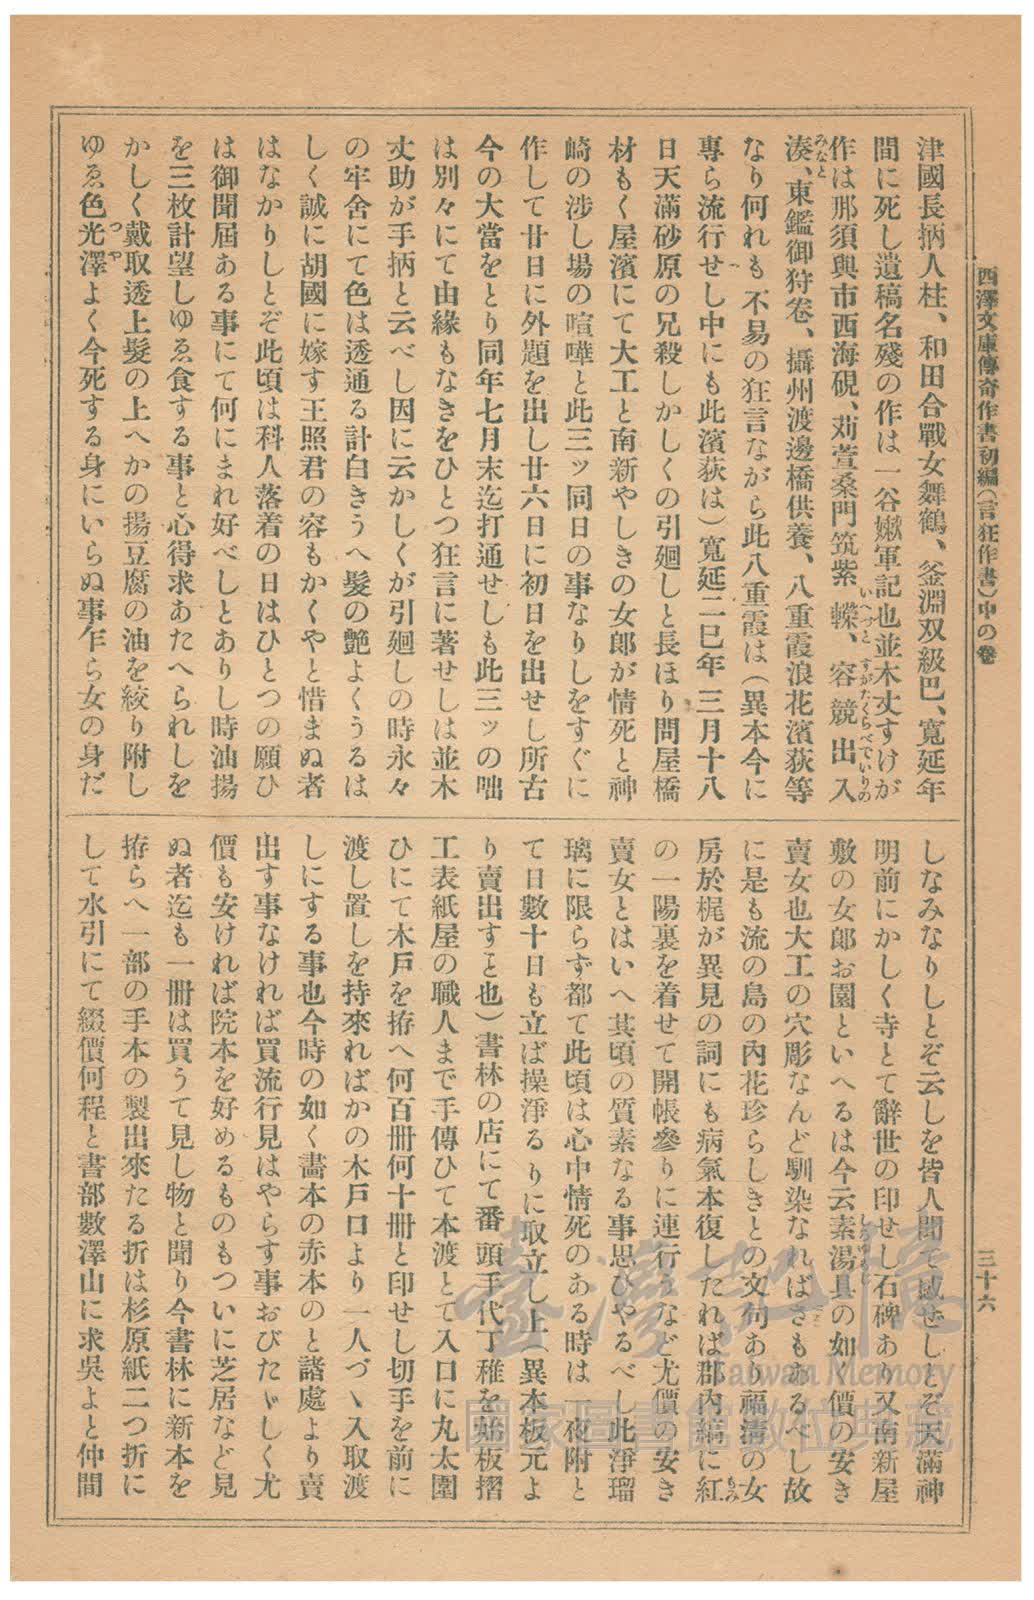 西澤文庫傳奇作書初編（言狂作書）中の卷
三十六
津國長柄人柱、和田合戰女舞鶴、釜淵双級巴、寬延年
間に死し遺稿名殘の作は一谷嫩軍記也並木丈すけが
作は那須與市西海硯、苅萱桑門筑紫𨏍、容競出入
湊、東鑑御狩卷、攝州渡邊橋供養、八重霞浪花濱荻等
なり何れも不易の狂言ながら此八重霞は（異本今に
專ら流行せし中にも此濱荻は）寬延二巳年三月十八
日天滿砂原の兄殺しかしくの引廻しと長ほり問屋橋
材もく屋濱にて大工と南新やしきの女郎が情死と神
崎の渉し場の喧嘩と此三ッ同日の事なりしをすぐに
作して廿日に外題を出し廿六日に初日を出せし所古
今の大當をとり同年七月末迄打通せしも此三ッの咄
は別々にて由緣もなきをひとつ狂言に著せしは並木
丈助が手柄と云べし因に云かしくが引廻しの時永々
の牢舍にて色は透通る計白きうへ髮の艶よくうるは
しく誠に胡國に嫁す王照君の容もかくやと惜まぬ者
はなかりしとぞ此頃は科人落着の日はひとつの願ひ
は御聞屆ある事にて何にまれ好べしとありし時油揚
を三枚計望しゆゑ食する事と心得求あたへられしを
かしく戴取透上髮の上へかの揚豆腐の油を絞り附し
ゆゑ色光澤よく今死する身にいらぬ事乍ら女の身だ
しなみなりしとぞ云しを皆人聞て感ぜしとぞ天滿神
明前にかしく寺とて辭世の印せし石碑あり又南新屋
敷の女郎お園といへるは今云素湯具の如く價の安き
賣女也大工の穴彫なんど馴染なればさもあるべし故
に是も流の島の內花珍らしきとの文句あり福淸の女
房於梶が異見の詞にも病氣本復したれば郡內縞に紅
の一陽裏を着せて開帳參りに連行うなど尤價の安き
賣女とはいへ其頃の質素なる事思ひやるべし此淨瑠
璃に限らず都て此頃は心中情死のある時は一夜附と
て日數十日も立ば操淨るりに取立し上（異本板元よ
り賣出すと也）書林の店にて番頭手代丁稚を始板摺
工表紙屋の職人まで手傳ひて本渡とて入口に丸太圍
ひにて木戶を拵へ何百册何十册と印せし切手を前に
渡し置しを持來ればかの木戶口より一人づゝ入取渡
しにする事也今時の如く畵本の赤本のと諸處より賣
出す事なければ買流行見はやらす事おびたゞしく尤
價も安ければ院本を好めるものもついに芝居など見
ぬ者迄も一册は買うて見し物と聞り今書林に新本を
拵らへ一部の手本の製出來たる折は杉原紙二つ折に
して水引にて綴價何程と書部數澤山に求吳よと仲間
臺灣記憶
Taiwan Memory
國家圖書館數位典藏